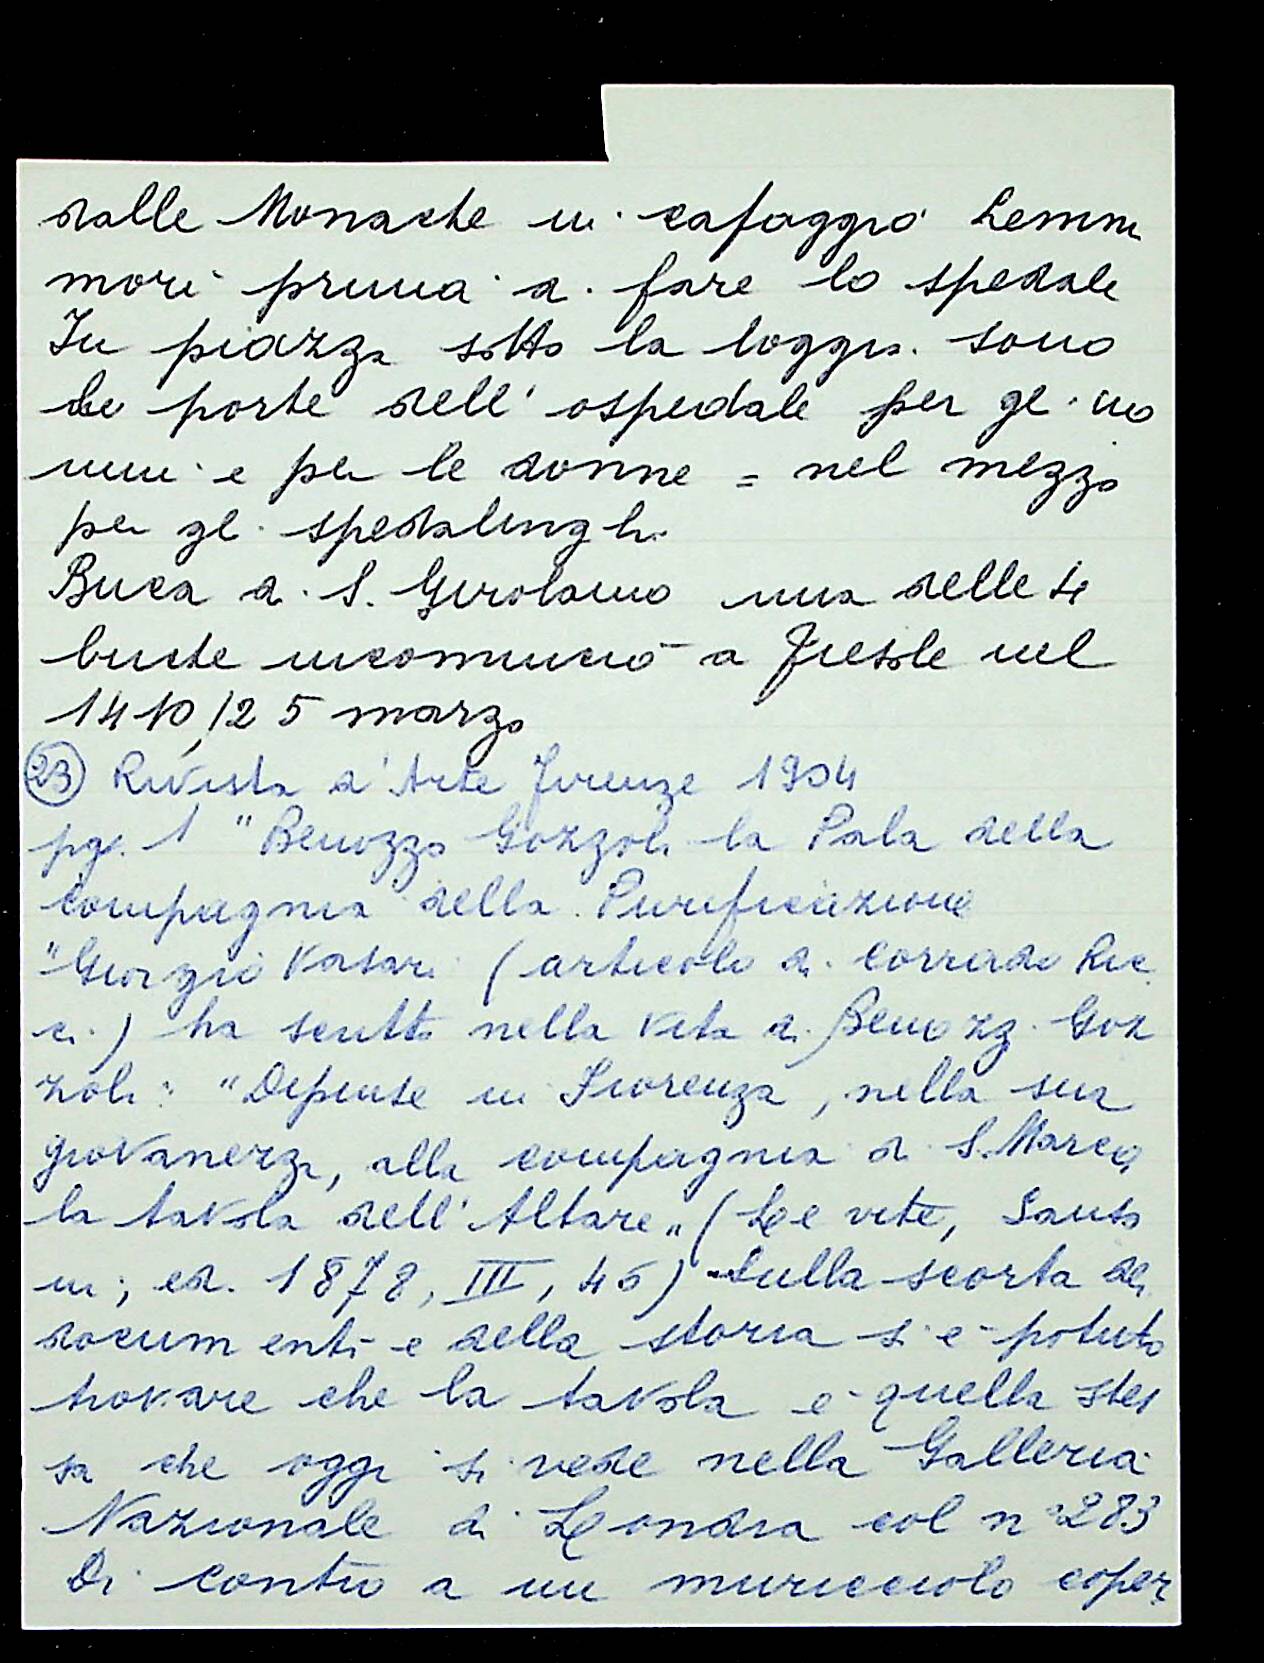 dalle Monache in cafaggio Lemm
mori prima di fare lo spedale
In piazza sotto la loggia sono
le porte dell' ospedale per gli uo
mini e per le donne = nel mezzo
per gli spedalinghi
Buca di S. Girolamo una delle 4
buche incominciò a Fiesole nel
1410, 25 marzo
(23) Rivista d'Arte Firenze 1904
pg. 1 "Benozzo Gozzoli la Pala della
compagnia della Purificazione
"Giorgio Vasari (articolo di Corrado Ric
ci) ha scritto nella Vita di Benozzo Goz
zoli: "Dipinse in Fiorenza, nella sua
giovanezza, alla compagnia di S. Marco,
la tavola dell'Altare" (Le vite, Sanso
ni; ed. 1878, III, 46) Sulla scorta dei
documenti e della storia si è potuto
trovare che la tavola è quella stes
sa che oggi si vede nella Galleria
Nazionale di Londra col n° 283
Di contro a un muricciolo coper